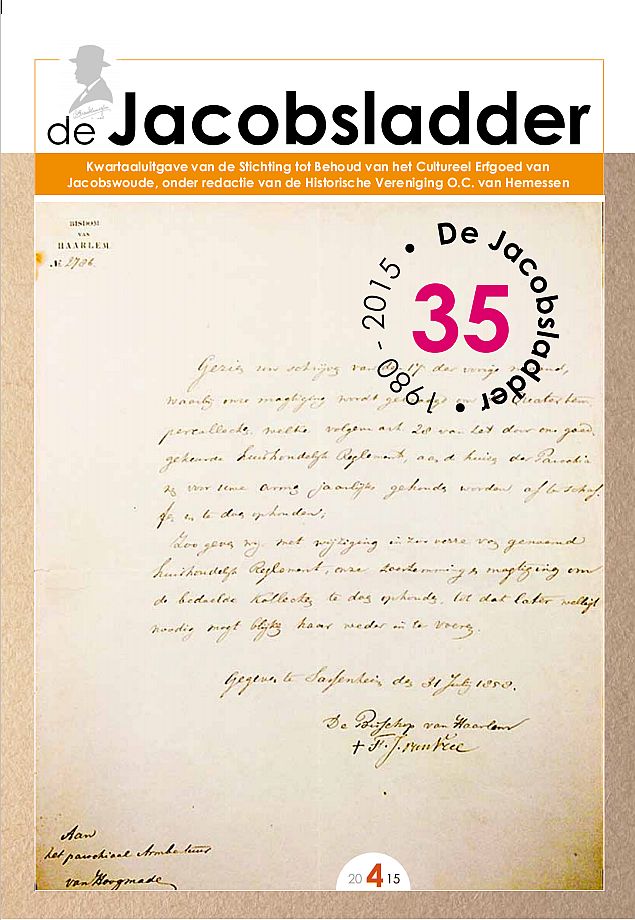 de Jacobsladder
Kwartaaluitgave van de Stichting tot Behoud van het Cultureel Erfgoed van
Jacobswoude, onder redactie van de Historische Vereniging O.C. van Hemessen
BISDOM
VAN
HAARLEM.
No. 2786.
De Jacobsladder • 1980 - 2015 •
35
Gezien uw schrijven van den 17 der vorige maand,
waarbij onze magtiging wordt
percollecten, welke volgens art 28 van het door ons goed
gekeurde huishoudelijk Reglement, aan de huizen der Parochia
nen voor eene armen jaarlijks gehouden worden af te schaf
fen en te doen ophouden;
Zoo geven wij, met wijziging in zoo verre van genoemd
huishoudelijk Reglement, onze toestemming en magtiging om
de bedoelde kollecten te doen ophouden, tot dat later welligt
noodig mogt blijken haar weder in te voeren.
Gegeven te Sassenheim den 31 July 1858.
De Bisschop van Haarlem
+ F. J. van Vree
Aan
het parochiaal Armbestuur
van Hoogmade
20 4 15